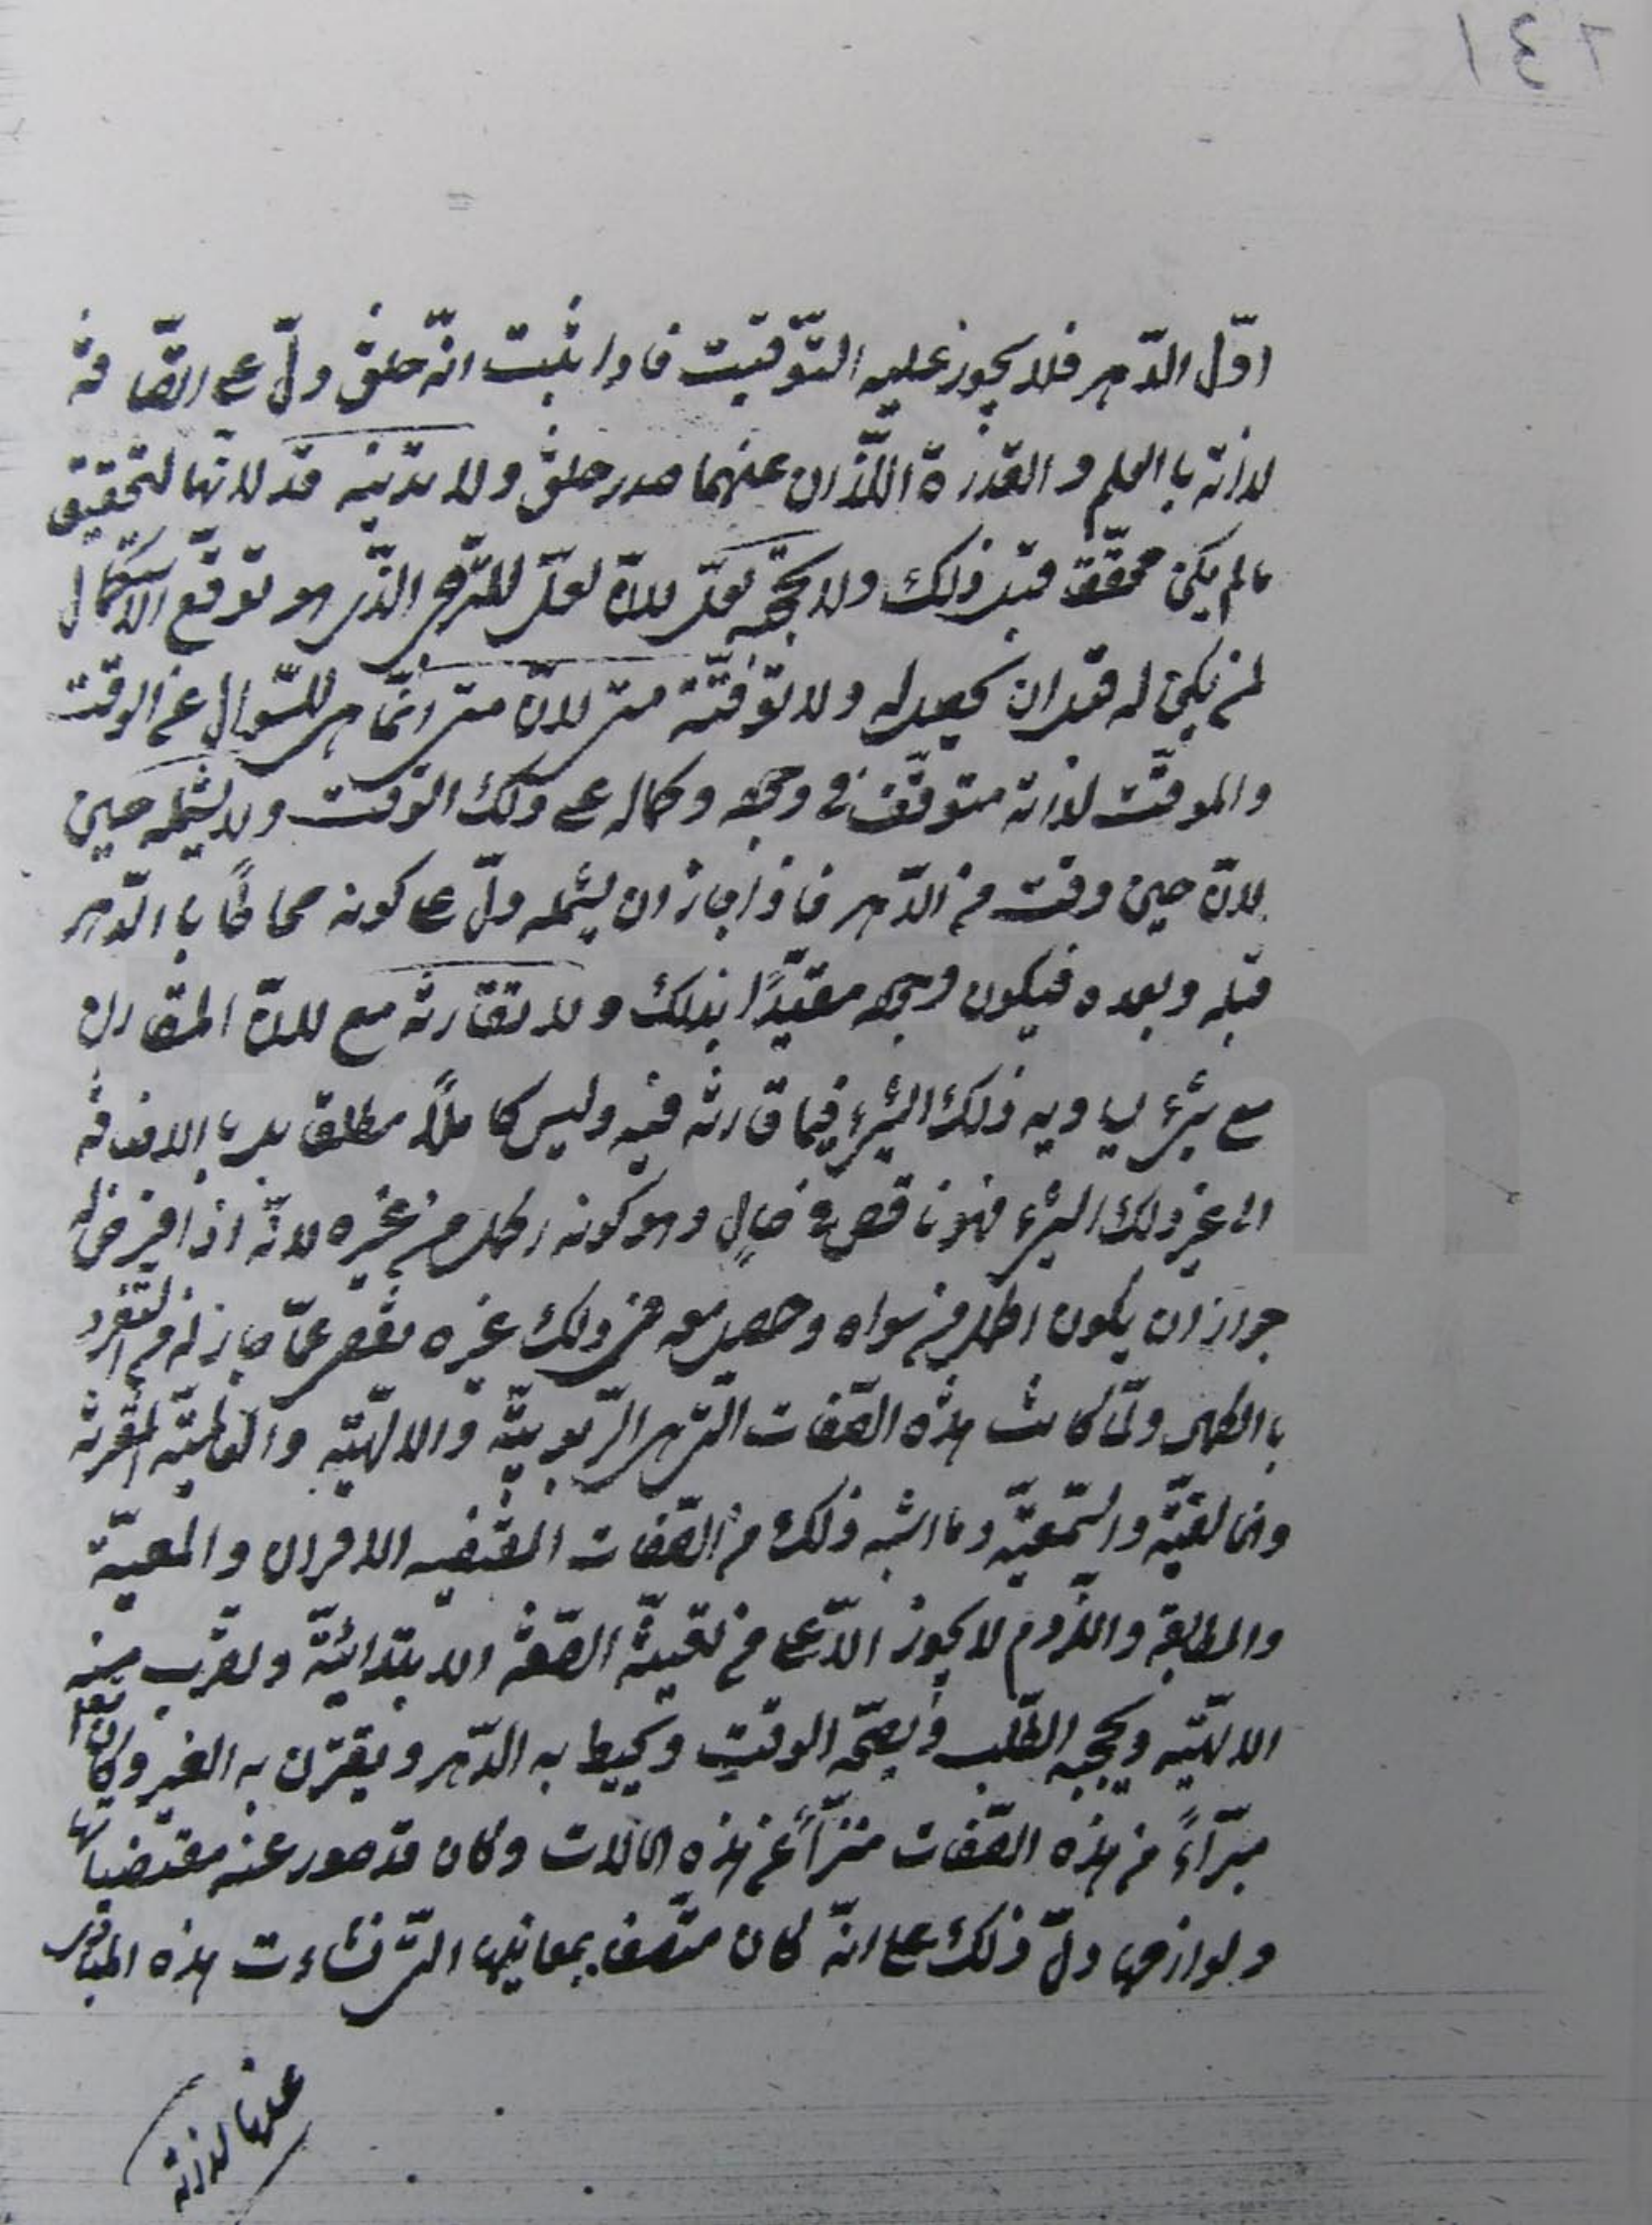 ١٤٢
اوّل الدّهر فلا يجوز عليه التّوقيت فاذا ثبت انّه خلق دلّ على اتّصافه
لذاته بالعلم و القدرة اللّذان عنهما صدر خلقه ولا تدنيه قد لانّها لتحقيق
ما لم يكن محقّق قبل ذلك ولا يحجبه لعلّ لانّ لعلّ للتّرجّى الّذى هو توقّع الاستكمال
لمن يكن له قبل ان يحصل له ولا توقّته متى لانّ متى انّما هى للسّوال عن الوقت
والموقّت لذاته متوقّف فى وجوده وكماله على ذلك الوقت ولا يشمله حين
لانّ حين وقت من الدّهر فاذا جاز ان يشمله دلّ على كونه محاطًا با الدّهر
قبله وبعده فيكون وجوده مقيّدًا بذلك ولا تقارنه مع لانّ المقارن
مع شىء يساويه ذلك الشىء فيما قارنه فيه وليس كاملًا مطلق بل با الاضافة
الى غير ذلك الشىء فهو ناقص فى حالٍ وهو كونه اكمل من غيره لانّه اذا فرض له
جواز ان يكون اكمل من سواه وحصل معه فى ذلك غيره نقص عمّا جاز له من التفرّد
با الكمال ولمّا كانت هذه الصّفات الّتى هى الرّبوبيّة والالهيّة والعالميّة
والخالقيّة والسّمعيّة وما اشبه ذلك من الصّفات المقتضيه الاقران والمعيّة
والمطابقة واللّزوم لا يجوز الّا على من الصّفة الابتدائيّة ولقرب منه
الالهيّة ويحجبه الطّلب و الوقت ويحيط به الدّهر ويقترن به الغير وكان تعالى
مبرّاءً من هذه الصّفات منزّأً عن هذه الحالات وكان قد صدر عنه مقتضياتها
ولوازمها دلّ ذلك على انّه كان متّصف بمعانيها الّتى نشاءت هذه المبادى
عنها لذاته